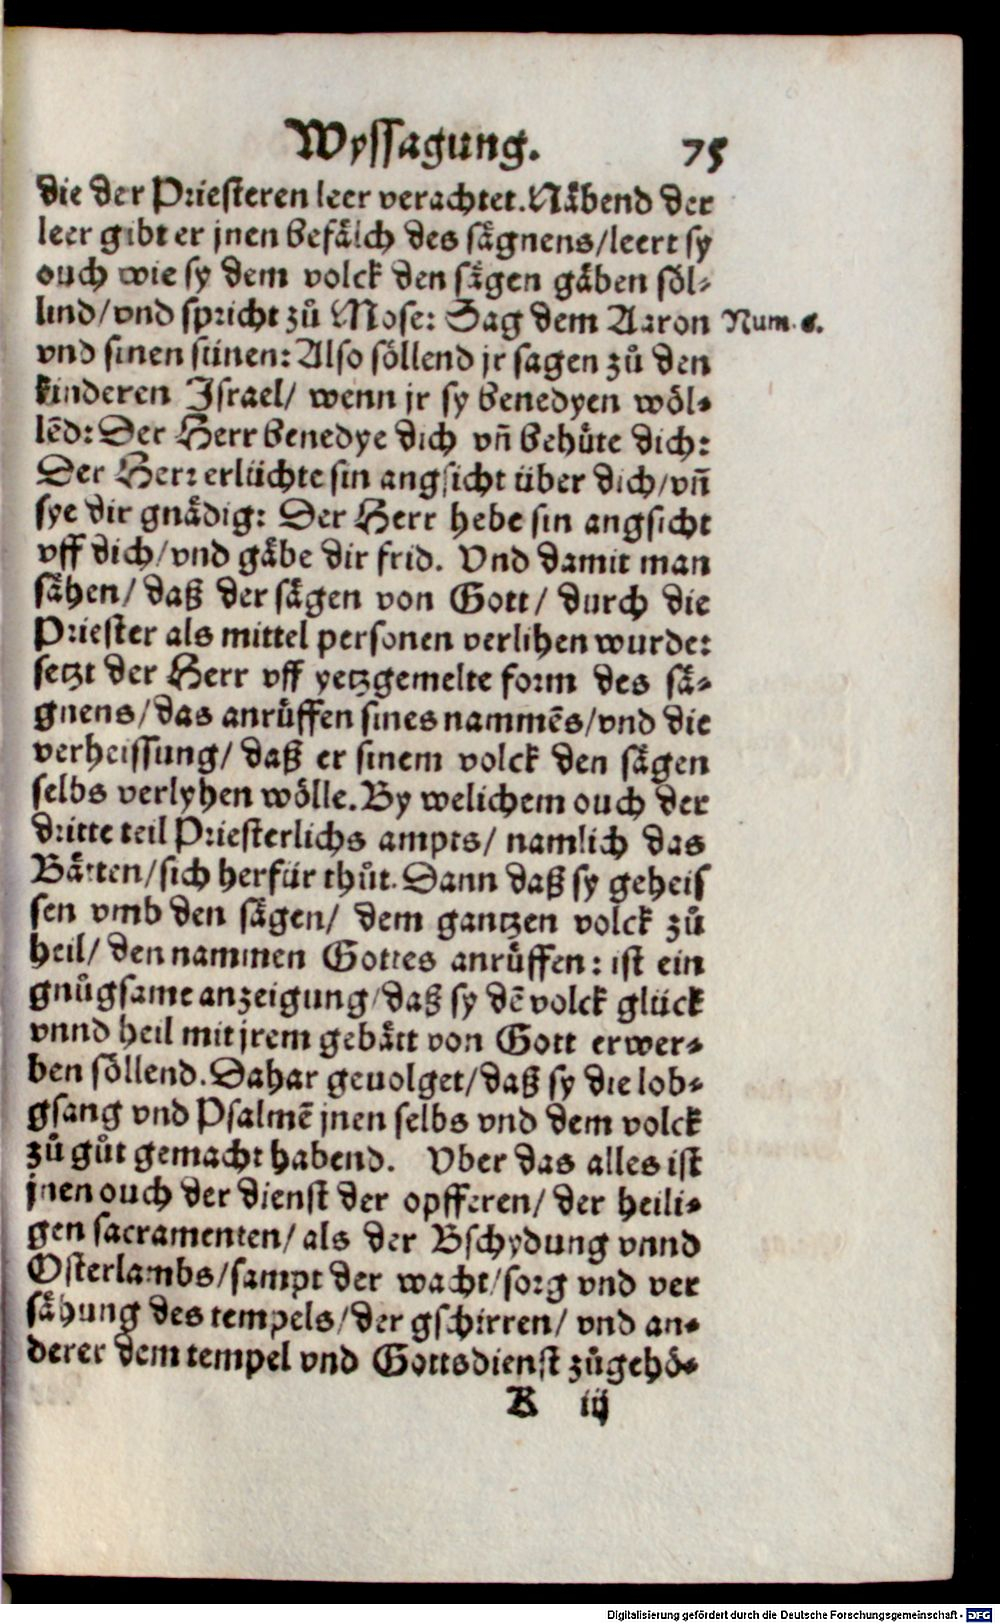 Wyssagung. 75
die der Priesteren leer verachtet. Näbend der
leer gibt er jnen befälch des sägnens/leert sy
ouch wie sy dem volck den sägen gäben söl⸗
lind/vnd spricht zů Mose: Sag dem Aaron Num. 6.
vnd sinen sünen: Also söllend jr sagen zů den
kinderen Israel/ wenn jr sy benedyen wöl⸗
lēd: Der Herr benedye dich vñ behüte dich:
Der Herr erlüchte sin angsicht über dich/vñ
sye dir gnädig: Der Herr hebe sin angsicht
vff dich/vnd gäbe dir frid. Vnd damit man
sähen/ daß der sägen von Gott/ durch die
Priester als mittel personen verlihen wurde:
setzt der Herr vff yetzgemelte form des sä⸗
gnens/das anrüffen sines nammēs/vnd die
verheissung/ daß er sinem volck den sägen
selbs verlyhen wölle. By welichem ouch der
dritte teil Priesterlichs ampts/ namlich das
Bätten/sich herfür thůt. Dann daß sy geheis
sen vmb den sägen/ dem gantzen volck zů
heil/ den nammen Gottes anrüffen: ist ein
gnůgsame anzeigung/daß sy dē volck glück
vnnd heil mit jrem gebätt von Gott erwer⸗
ben söllend. Dahar geuolget/daß sy die lob⸗
gsang vnd Psalmē jnen selbs vnd dem volck
zů gůt gemacht habend. Vber das alles ist
jnen ouch der dienst der opfferen/ der heili⸗
gen sacramenten/ als der Bschydung vnnd
Osterlambs/sampt der wacht/sorg vnd ver
sähung des tempels/der gschirren/ vnd an⸗
derer dem tempel vnd Gottsdienst zůgehö⸗
K iij
Digitalisierung gefördert durch die Deutsche Forschungsgemeinschaft - DFG